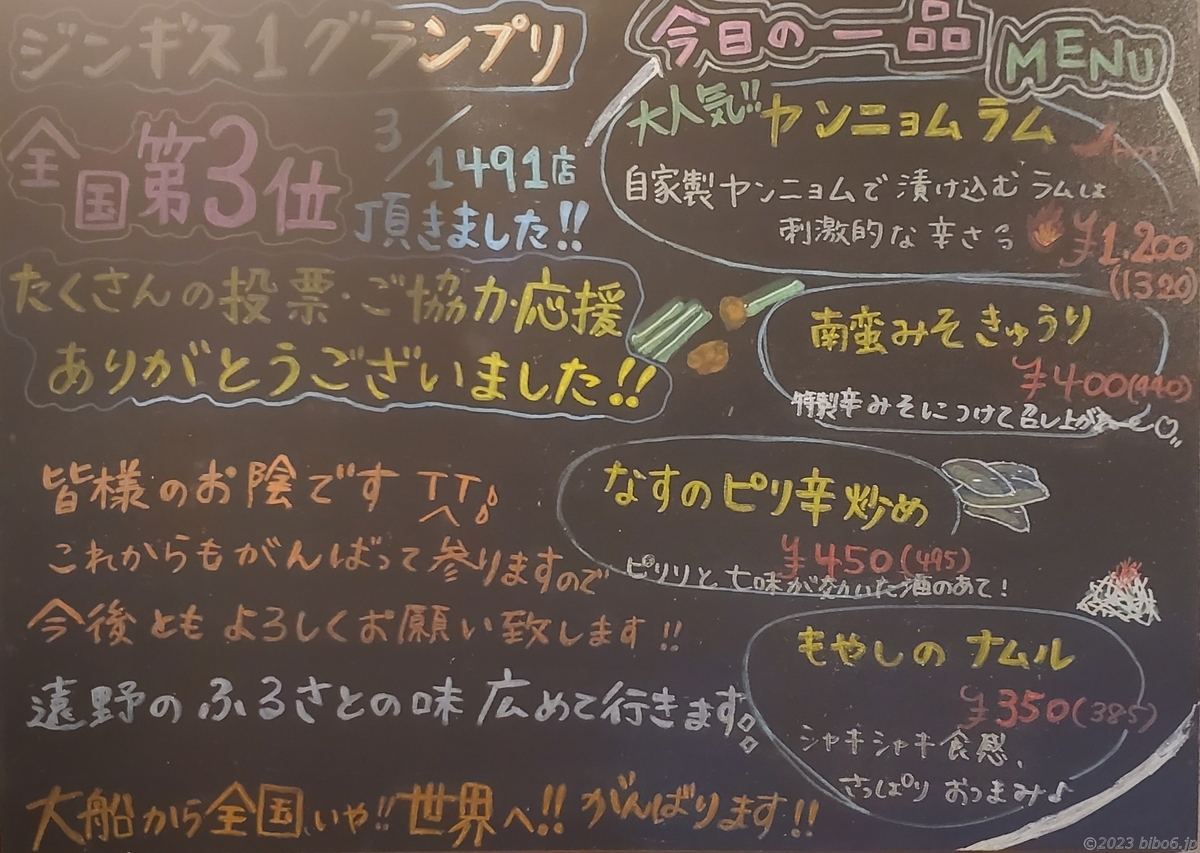 ジンギス1グランプリ
全国第3位
3/1491店
頂きました!!
たくさんの投票・ご協力・応援
ありがとうございました!!
皆様のお陰です TT♪
これからもがんばって参りますので
今後ともよろしくお願い致します!!
遠野のふるさとの味 広めて行きます。
大船から全国、いや!!世界へ!! がんばります!!
今日の一品
MENU
大人気!! ヤンニョムラム
自家製ヤンニョムで漬け込むラムは
刺激的な辛さっ
¥1,200
(1320)
南蛮みそきゅうり
¥400(440)
特製辛みそにつけて召し上が
なすのピリ辛炒め
¥450(495)
ピリリと七味が効いた酒のあて!
もやしのナムル
¥350(385)
シャキシャキ食感、
さっぱりおつまみ♪
©2023 bibo6.jp